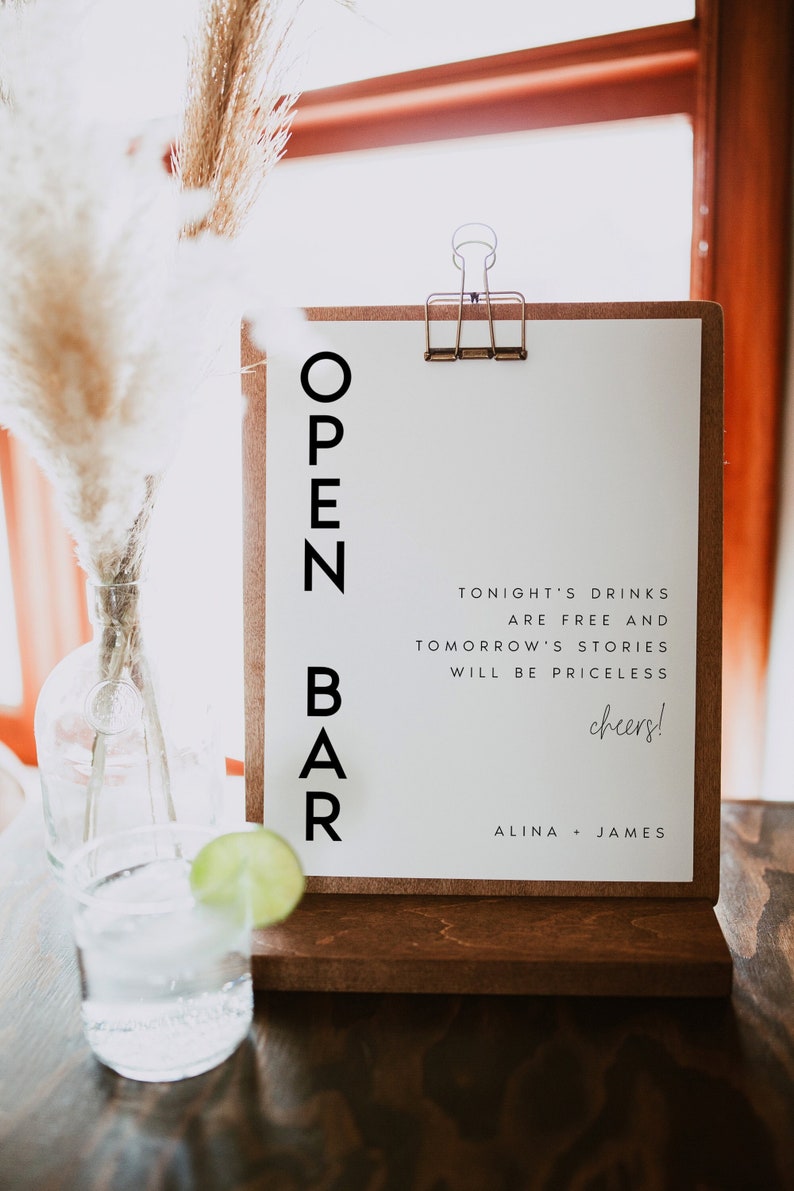 OPEN BAR
TONIGHT'S DRINKS
ARE FREE AND
TOMORROW'S STORIES
WILL BE PRICELESS
cheers!
ALINA + JAMES